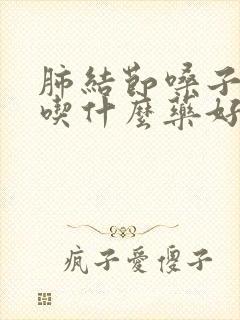 肺結節嗓子
喫什麼藥好
瘋子愛傻子